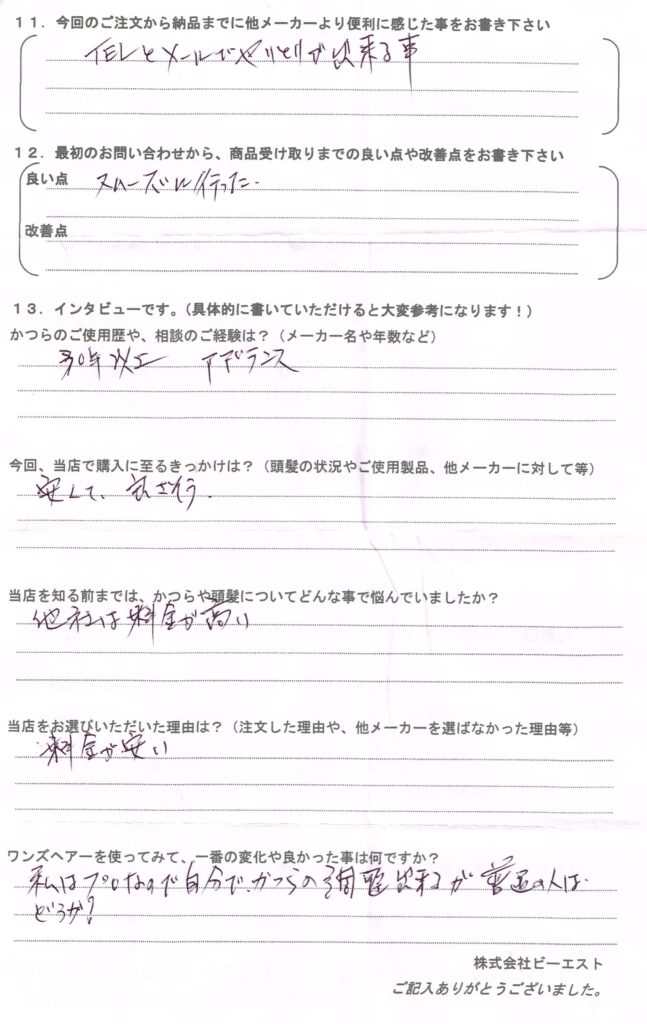 11．今回のご注文から納品までに他メーカーより便利に感じた事をお書き下さい
TELとメールでやりとりが出来る事
12．最初のお問い合わせから、商品受け取りまでの良い点や改善点をお書き下さい
良い点 スムーズに行った.
改善点
13．インタビューです。（具体的に書いていただけると大変参考になります！）
かつらのご使用歴や、相談のご経験は？（メーカー名や年数など）
30年以上 アデランス
今回、当店で購入に至るきっかけは？（頭髪の状況やご使用製品、他メーカーに対して等）
安くて、良さそう.
当店を知る前までは、かつらや頭髪についてどんな事で悩んでいましたか？
他社は料金が高い
当店をお選びいただいた理由は？（注文した理由や、他メーカーを選ばなかった理由等）
料金が安い
ワンズヘアーを使ってみて、一番の変化や良かった事は何ですか？
私はプロなので自分で、かつらの調整出来るが普通の人は
どうか？
株式会社ビーエスト
ご記入ありがとうございました。